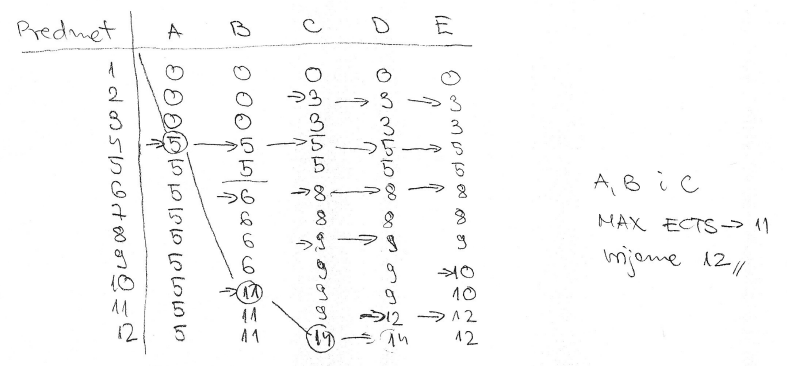 Predmet A B C D E
1 0 0 0 0 0
2 0 0 →3 → 3 → 3
3 0 0 3 3 3
4 →5 → 5 → 5 → 5 → 5
5 5 5 5 5 5
6 5 →6 →8 → 8 → 8
7 5 6 8 8 8
8 5 6 →9 → 9 9
9 5 6 9 9 →10
10 5 →11 9 9 10
11 5 11 9 →12 → 12
12 5 11 14 → 14 12
A, B i C
MAX ECTS → 11
vrijeme 12 //